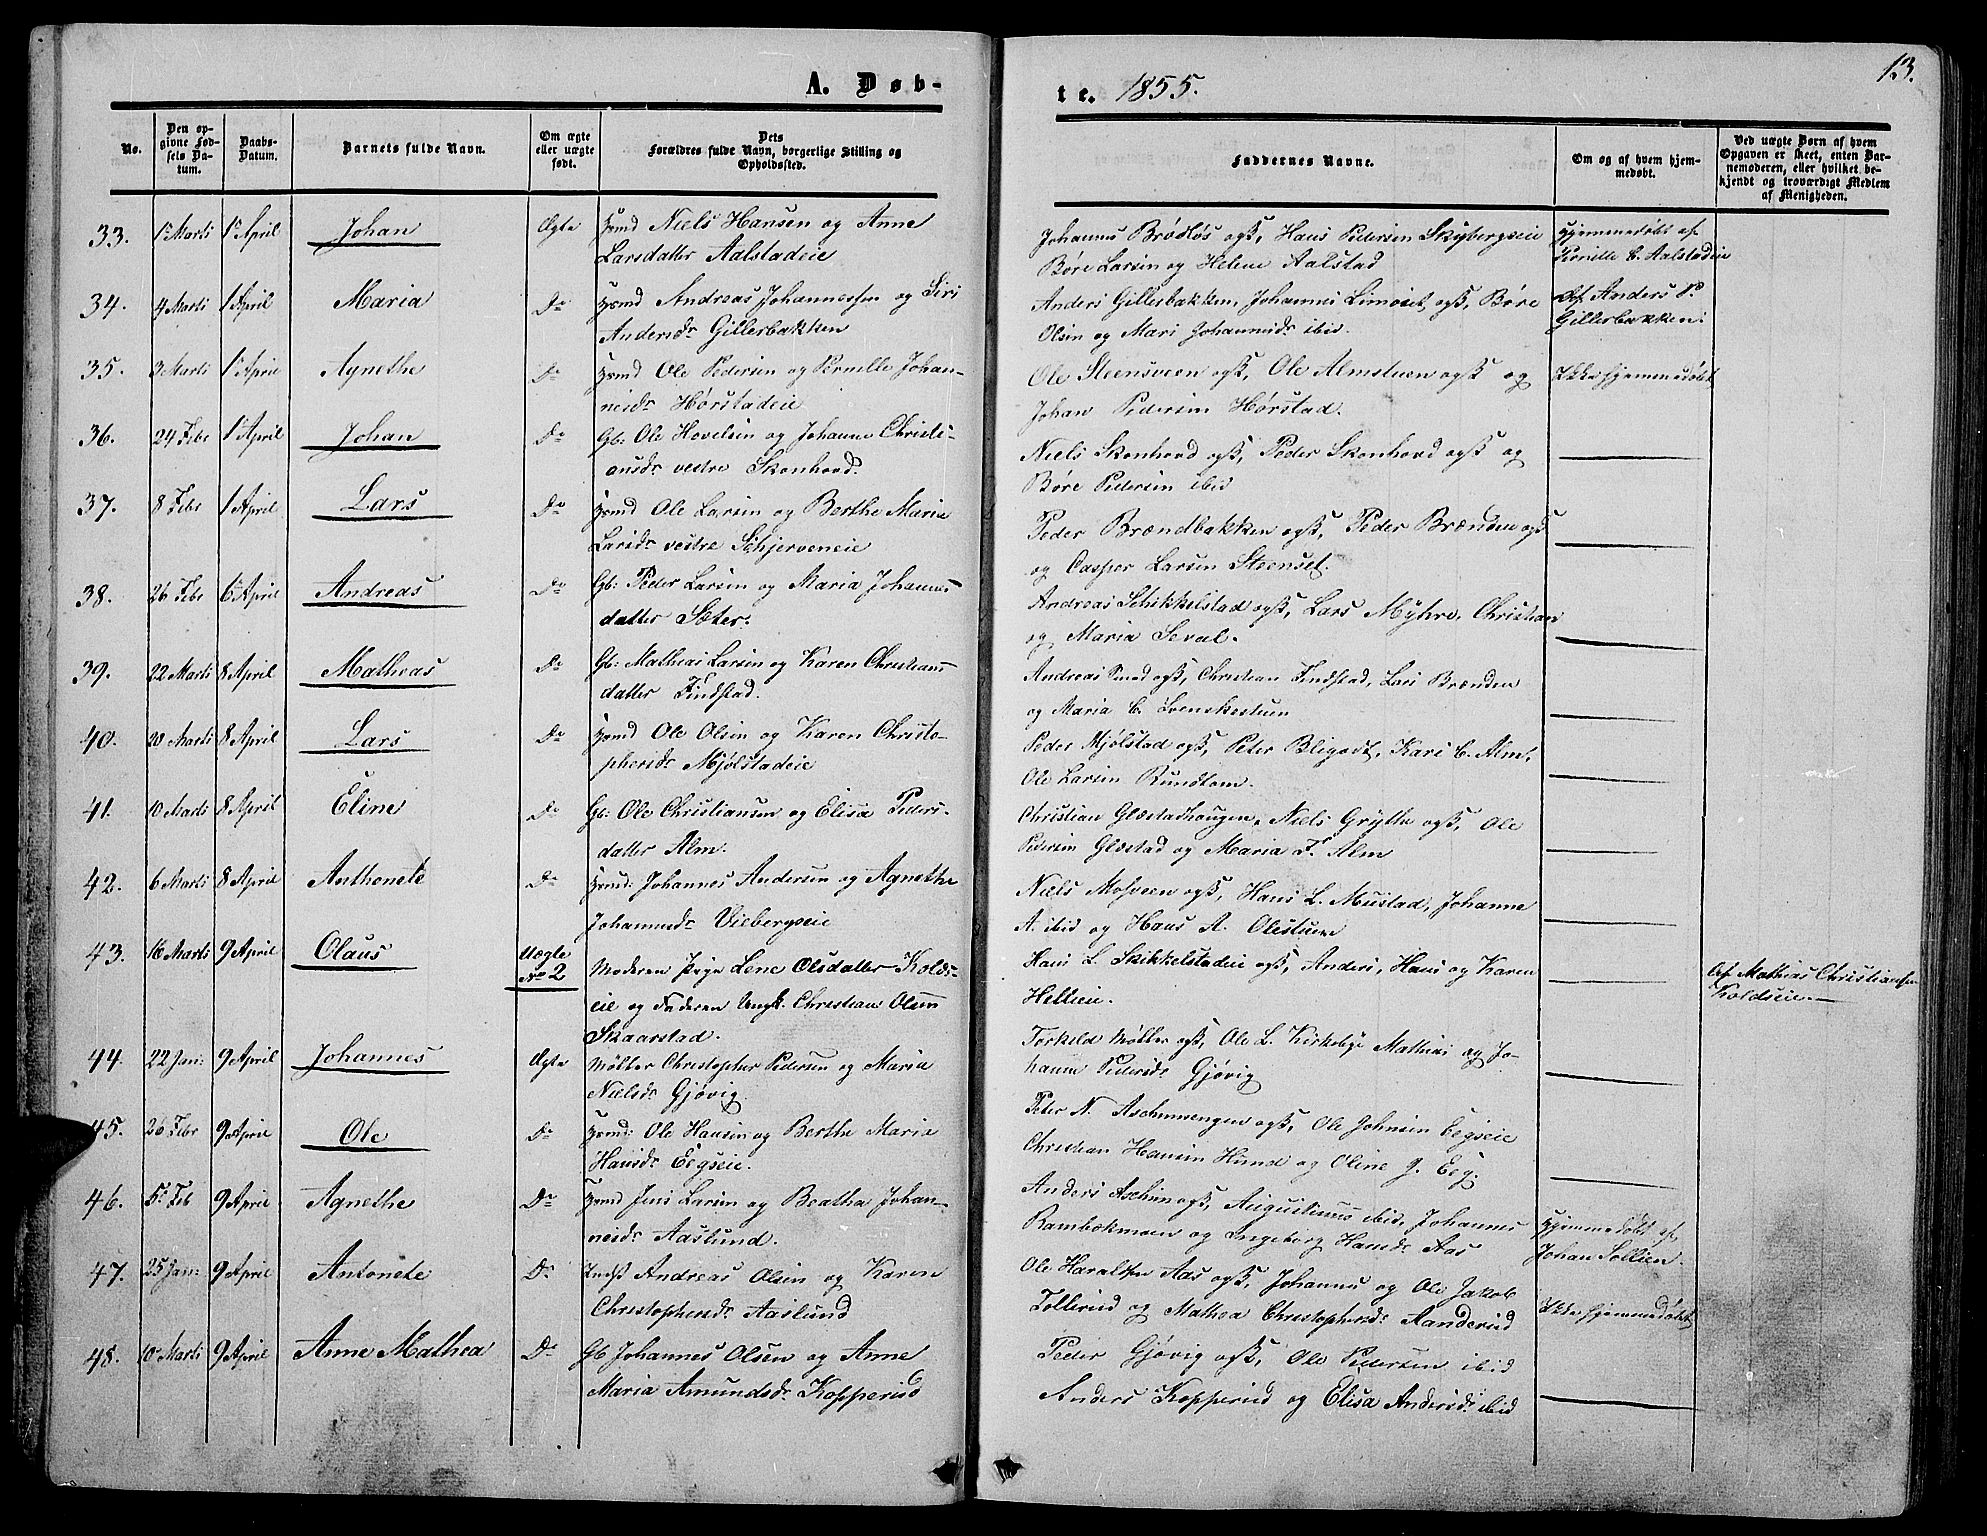 A. Døb-
te. 1855.
13.
No.
Den op-
givne Fød-
sels Da-
tum.
Daabs-
Datum.
Barnets fulde Navn.
Om ægte
eller uægte
født.
Dets
Forældres fulde Navn, borgerlige Stilling og
Opholdssted.
Faddernes Navne.
Om og af hvem hjem-
medøbt.
Ved uægte Børn af hvem
Opgaven er skeet, enten Bar-
nemoderen, eller hvilket be-
kjendt og troværdigt Medlem
af Menigheden.
33. 1 Marts 1 April Johan Ægte Hsmd Niels Hansen og Anne
Larsdatter Aalstadeie
Johannes Brødløs ogß, Hans Pedersen Skybergseie
Børe Larsen og Helene Aalstad
Hjemmedøbt af
Pernille C. Aalstadeie
34. 4 Marts 1 April Maria Do Hsmd Andreas Johannessen og Siri
Andersdr Gillerbakken
Anders Gillerbakken, Johannes Limoiet ogß, Børe
Olsen og Mari Johannesdr ibid.
Af Anders P.
Gillerbakken.
35. 3 Marts 1 April Agnethe Do Hsmd Ole Pedersen og Pernille Johan-
nesdr Hørstadeie
Ole Steensveen ogß, Ole Almstuen ogß og
Johan Pedersen Hørstad.
Ikke hjemmedøbt
36. 24 Febr 1 April Johan Do Gb: Ole Hovelsen og Johanne Christi-
ansdr vestre Skonhovd.
Niels Skonhovd ogß, Peder Skonhovd ogß og
Børe Pedersen ibid
37. 8 Febr 1 April Lars Do Hsmd Ole Larsen og Berthe Maria
Larsdr vestre Schjerveneie
Peder Brændbakken ogß, Peder Brænden ogß
og Casper Larsen Steenset.
38. 26 Febr 6 April Andreas Do Gb: Peder Larsen og Maria Johannes
datter Sæter.
Andreas Schikkelstad ogß, Lars Myhre, Christian
og Maria Seval.
39. 22 Marts 8 April Matheas Do Gb: Mathias Larsen og Karen Christians
datter Findstad.
Andreas ogß, Christian Findstad, Lars Brænden
og Maria C. Svenskestuen
40. 20 Marts 8 April Lars Do Hsmd Ole Olsen og Karen Christo-
phersdr Mjølstadeie
Peder Mjølstad ogß, Peter Bligodt, Kari C. Alm,
Ole Larsen Rundtom.
41. 10 Marts 8 April Eline Do Gb: Ole Christiansen og Elisa Peders-
datter Alm.
Christian Glæstadhaugen, Niels Grytte ogß, Ole
Pedersen Glæstad og Maria F. Alm
42. 6 Marts 8 April Anthonete Do Hsmd: Johannes Andersen og Agnethe
Johannesdr Viebergseie
Niels Mosveen ogß, Hans L. Mustad, Johanne
A. ibid og Hans A. Olestuen
43. 16 Marts 9 April Olaus Uægte
No 2
Moderen Pige Lene Olsdatter Kolds-
eie og Faderen Ungk. Christian Olsen
Skaarstad.
Hans L. Skikkelstadeie ogß, Anders, Hans og Karen
Hellieie.
Af Mathias Christiansen
Koldseie.
44. 22 Jan: 9 April Johannes Ægte Møller Christopher Pedersen og Maria
Nielsdr Gjøvig
Torkeld Møller ogß, Ole L. Kirkebye Mathias og Jo-
hanne Pedersdr Gjøvig
45. 26 Febr 9 April Ole Do Hsmd: Ole Hansen og Berthe Maria
Hansdr Eegseie.
Peter N. Aschimengen ogß, Ole Johnsen Eegseie
Christian Hansen Hund og Oline J. Eeg.
46. 5 Feb 9 April Agnethe Do Hsmd Jens Larsen og Beatha Johan-
nesdr Aaslund.
Anders Aschim ogß, Augustinus ibid, Johannes
Rambækmoen og Ingeborg Hansdr Aas
Hjemmedøbt af
Johan Sollien.
47. 25 Jan: 9 April Antonete Do Indst Andreas Olsen og Karen
Christophersdr Aaslund
Ole Haralsen Aas ogß, Johannes og Ole Jakob
Tollerud og Mathea Christophersdr Aanderud
Ikke hjemmedøbt
48. 10 Marts 9 April Anne Mathea Do Gb Johannes Olsen og Anne
Maria Amundsdr Kopperud
Peder Gjøvig ogß, Ole Pedersen ibid
Anders Kopperud og Elisa Andersdr ibid